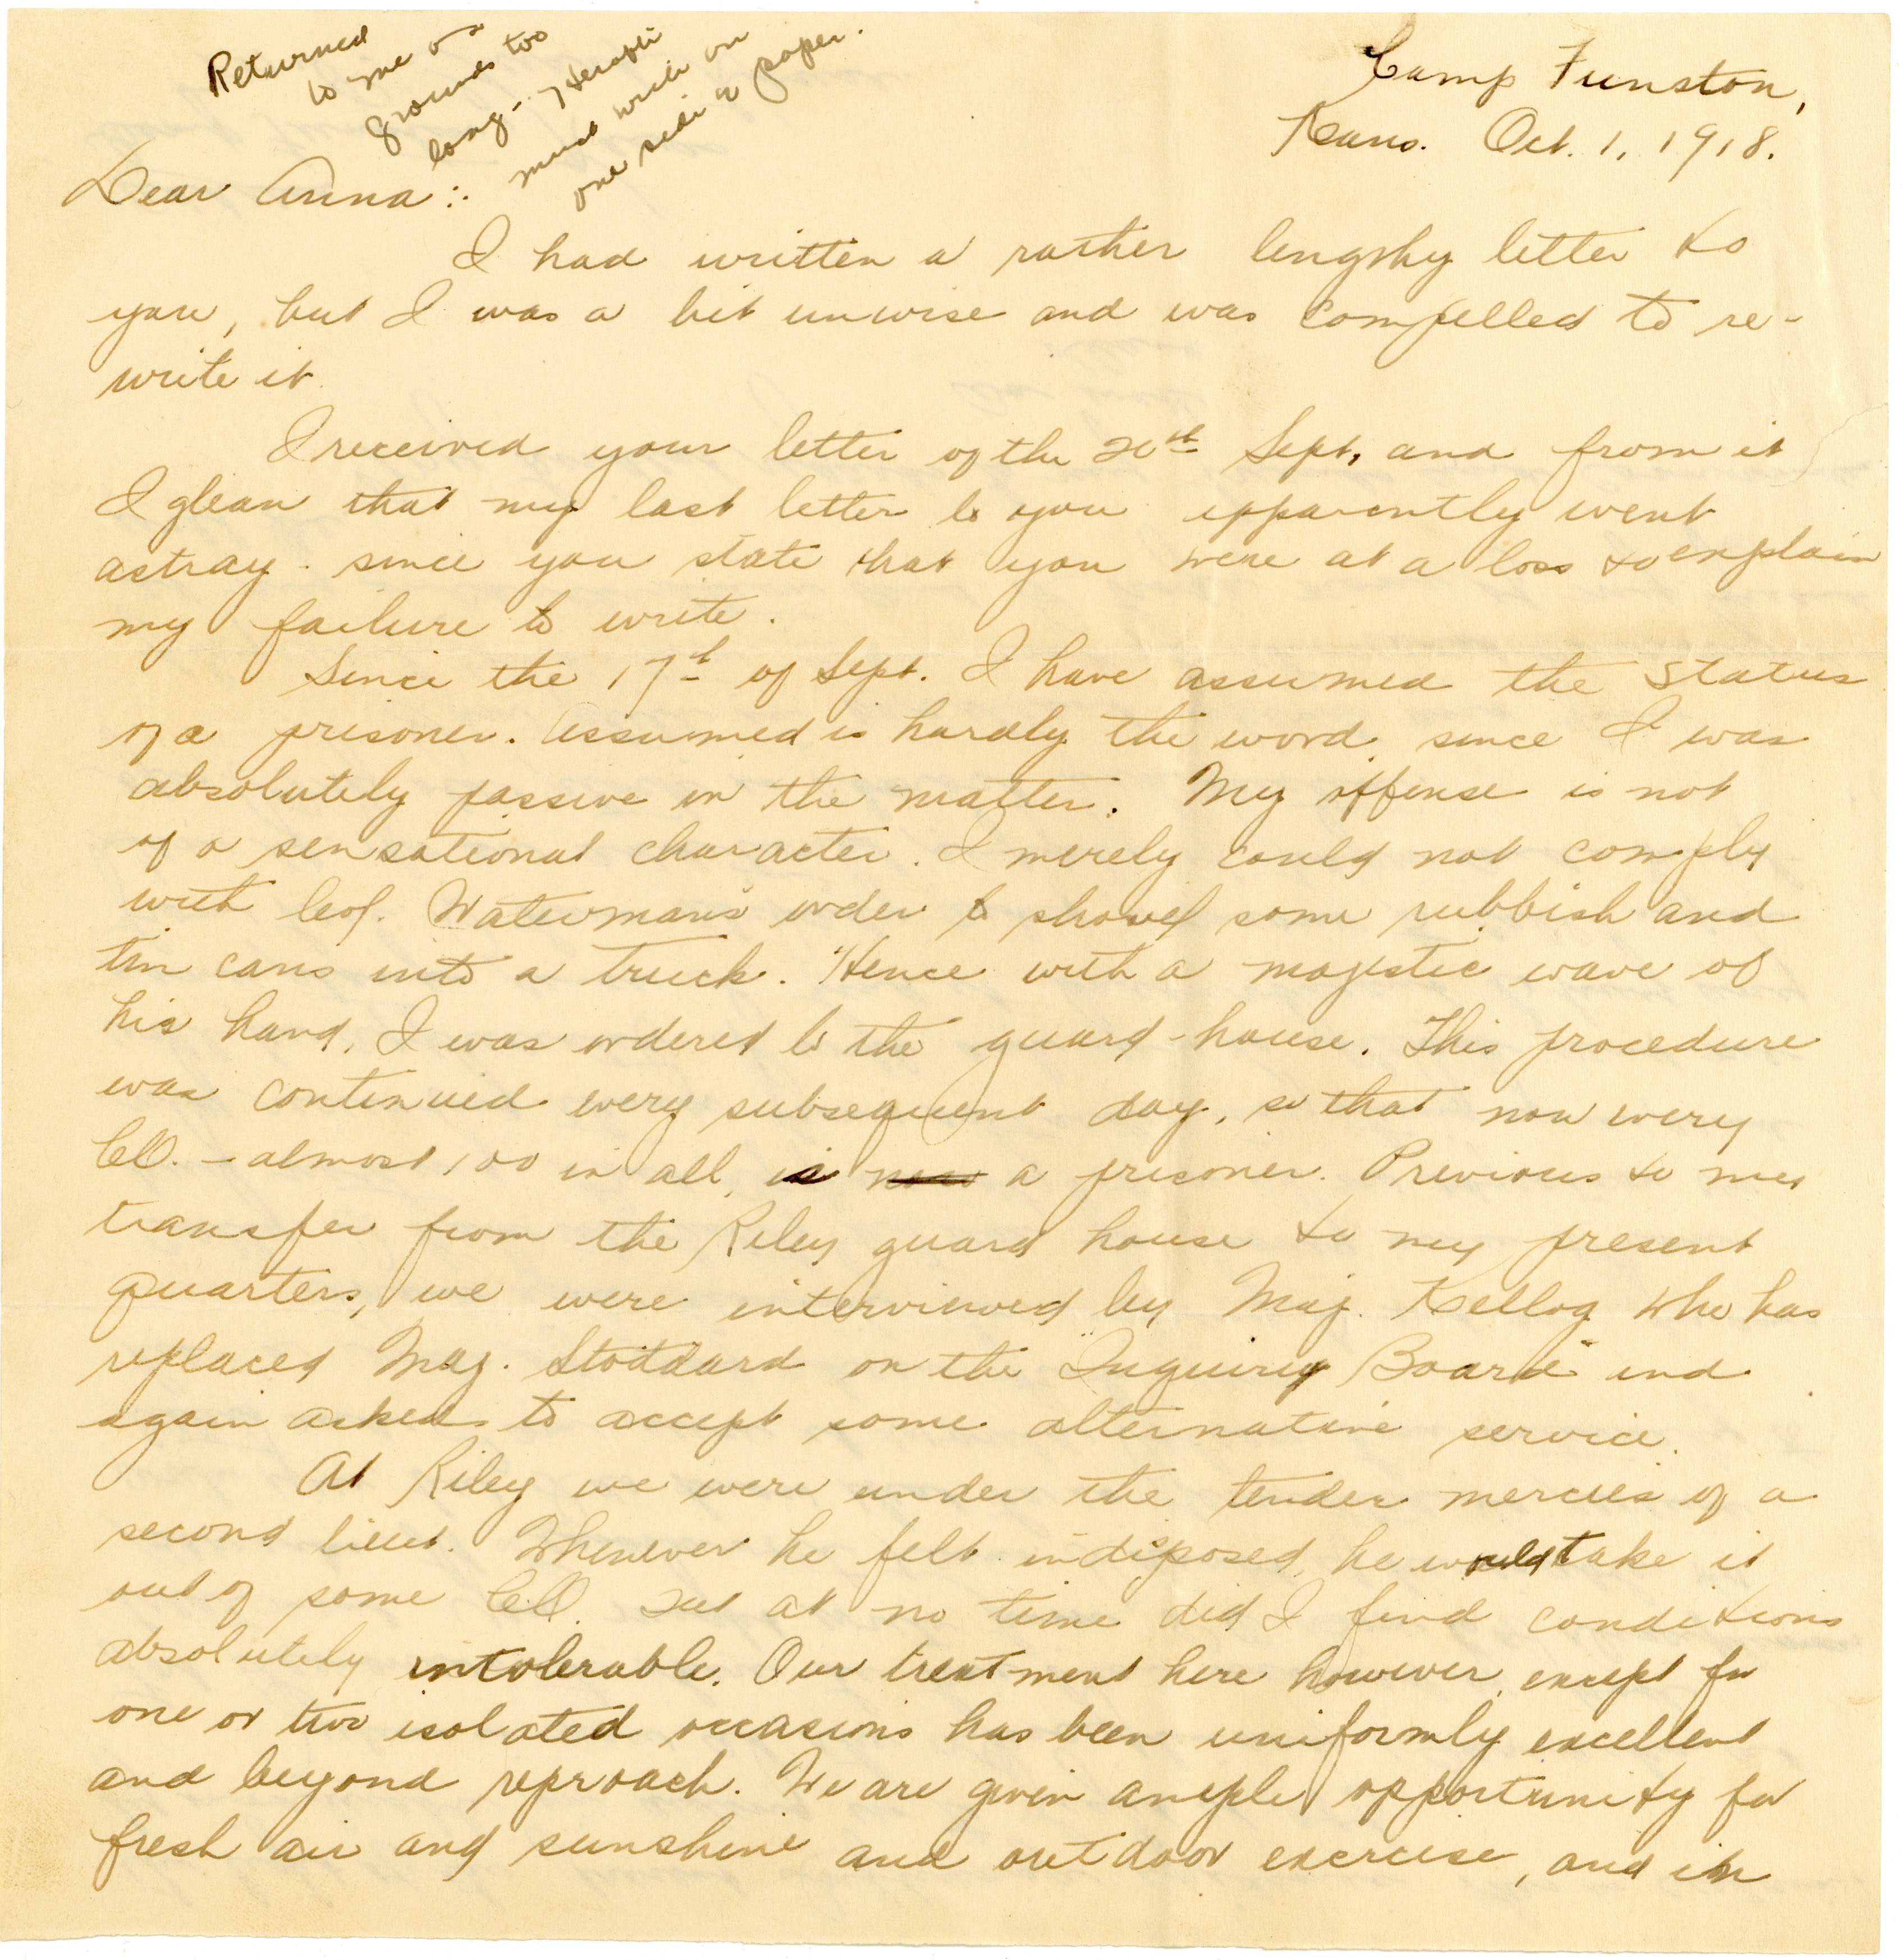 Returned
to me on
grounds too
long. Hereafter
must write on
one side of paper.
Camp Funston,
Kans. Oct. 1, 1918.
Dear Anna:
I had written a rather lengthy letter to
you, but I was a bit unwise and was compelled to re-
write it
I received your letter of the 20th Sept, and from it
I glean that my last letter to you apparently went
astray. since you state that you were at a loss to explain
my failure to write.
Since the 17th of Sept. I have assumed the status
of a prisoner. Assumed is hardly the word since I was
absolutely passive in the matter. My offense is not
of a sensational character. I merely could not comply
with Col. Waterman's order to shovel some rubbish and
tin cans into a truck. Hence with a majestic wave of
his hand, I was ordered to the guard-house. This procedure
was continued every subsequent day, so that now every
CO. - almost 100 in all, is now a prisoner. Previous to my
transfer from the Riley guard house to my present
quarters, we were interviewed by Maj. Kellog who has
replaced Maj. Stoddard on the "Inquiry Board" and
again asked to accept some alternative service.
At Riley we were under the tender mercies of a
second lieut. Whenever he felt indisposed, he would take it
out of some CO. but at no time did I find conditions
absolutely intolerable. Our treatment here however, except for
one or two isolated occasions has been uniformly excellent
and beyond reproach. We are given ample opportunity for
fresh air and sunshine and outdoor exercise, and in